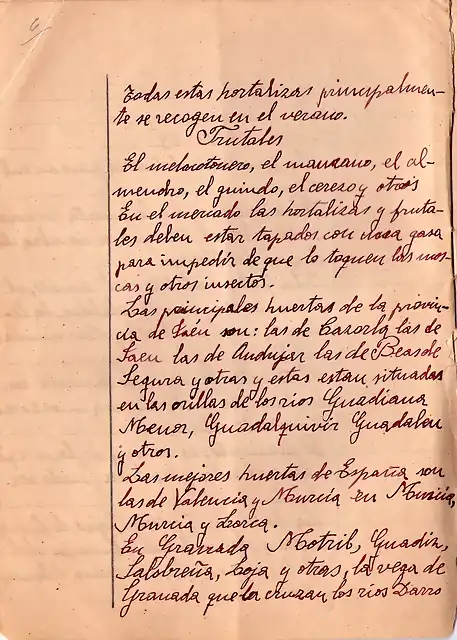 6
Todas estas hortalizas principalmen-
te se recogen en el verano.
Frutales
El melocotonero, el manzano, el al-
mendro, el guindo, el cerezo y otros
En el mercado las hortalizas y fruta-
les deben estar tapados con una gasa
para impedir de que lo toquen las mos-
cas y otros insectos.
Las principales huertas de la provin-
cia de Jaen son: las de Cazorla las de
Jaen las de Andujar las de Beas de
Segura y otras y estas estan situadas
en las orillas de los rios Guadiana
Menor, Guadalquivir Guadalen
y otros.
Las mejores huertas de España son
las de Valencia y Murcia en Murcia,
Murcia y Lorca.
En Granada Motril, Guadix,
Salobreña, Loja y otras, la vega de
Granada que la cruzan los rios Darro